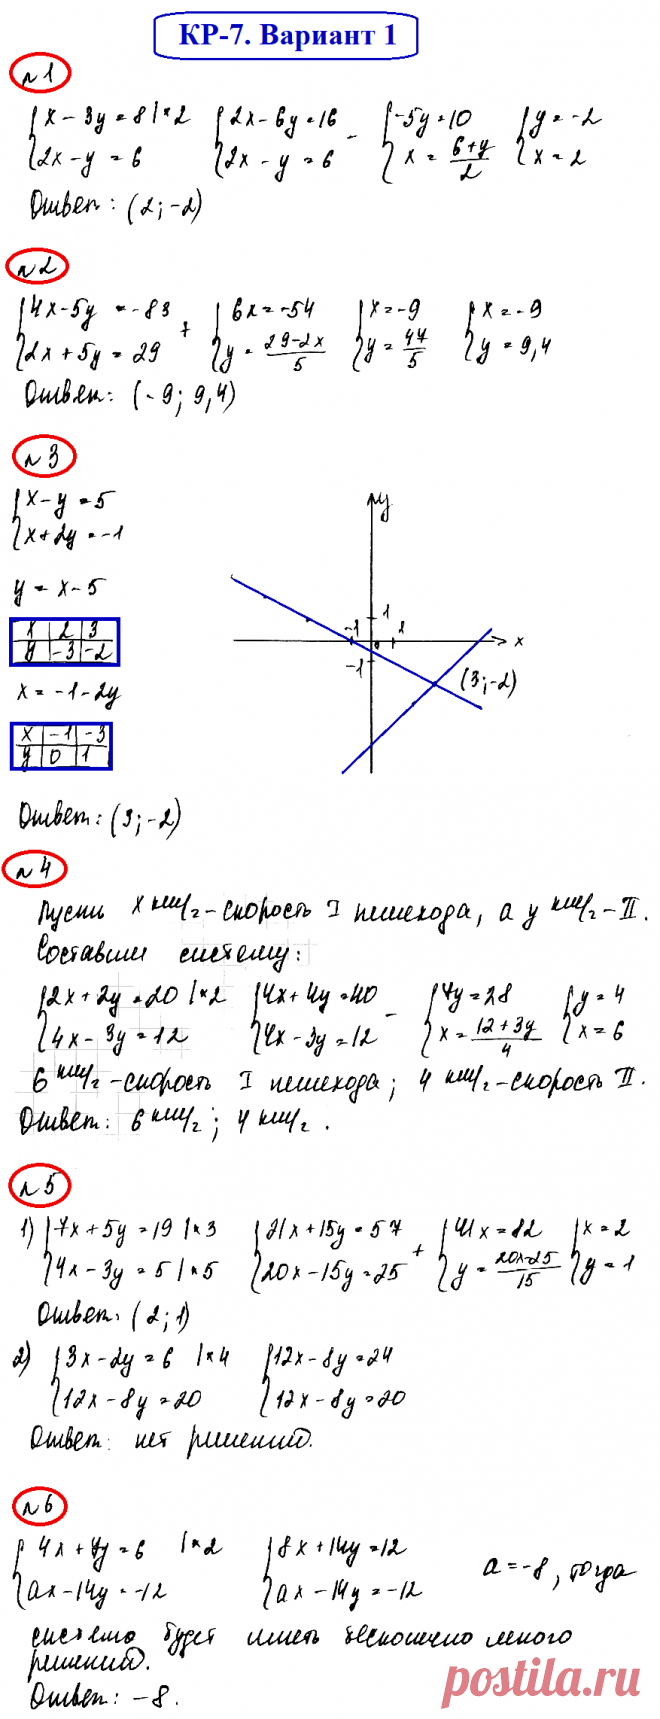 КР-7. Вариант 1
№1
{x - 3y = 8 |*2 {2x - 6y = 16 - {-5y = 10 {y = -2
{2x - y = 6 {2x - y = 6 {x = (6+y)/2 {x = 2
Ответ: (2; -2)
№2
{4x - 5y = -83 + {6x = -54 {x = -9 {x = -9
{2x + 5y = 29 {y = (29-2x)/5 {y = 47/5 {y = 9,4
Ответ: (-9; 9,4)
№3
{x - y = 5
{x + 2y = -1
y = x - 5
x 2 3
y -3 -2
x = -1 - 2y
x -1 -3
y 0 1
y
1
-1 0 1 x
-1
(3; -2)
Ответ: (3; -2)
№4
Пусть x км/ч - скорость I пешехода, а y км/ч - II.
Составим систему:
{2x + 2y = 20 |*2 {4x + 4y = 40 - {7y = 28 {y = 4
{4x - 3y = 12 {4x - 3y = 12 {x = (12+3y)/4 {x = 6
6 км/ч - скорость I пешехода; 4 км/ч - скорость II.
Ответ: 6 км/ч; 4 км/ч.
№5
1) {7x + 5y = 19 |*3 {21x + 15y = 57 + {41x = 82 {x = 2
{4x - 3y = 5 |*5 {20x - 15y = 25 {y = (20x-25)/15 {y = 1
Ответ: (2; 1)
2) {3x - 2y = 6 |*4 {12x - 8y = 24
{12x - 8y = 20 {12x - 8y = 20
Ответ: нет решений.
№6
{4x + 7y = 6 |*2 {8x + 14y = 12 a = -8, тогда
{ax - 14y = -12 {ax - 14y = -12
система будет иметь бесконечно много
решений.
Ответ: -8.
postila.ru